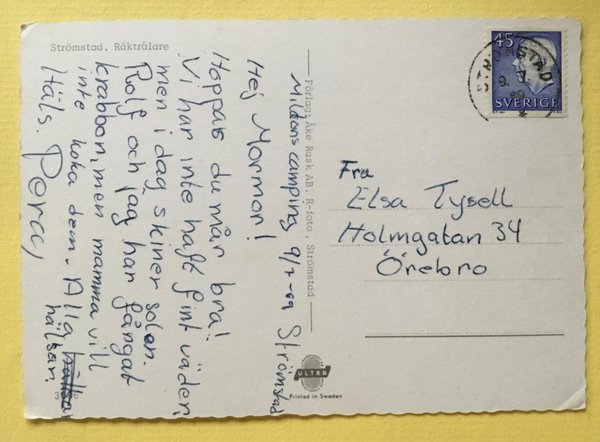 Strömstad. Räktrålare
Mildons camping 9/7-69 Strömstad
Hej Mormor!
Hoppas du mår bra!
Vi har inte haft fint väder,
men i dag skiner solen.
Rolf och jag har fångat
krabbor, men mamma vill
inte koka dem. Alla hälsa
hälsar.
Häls. Pera,
Förlag: Åke Rask AB. R-foto, Strömstad
45
SVERIGE
STRÖMSTAD
9. 7.
69
Fru
Elsa Tysell
Holmgatan 34
Örebro
ULTRA
Printed in Sweden